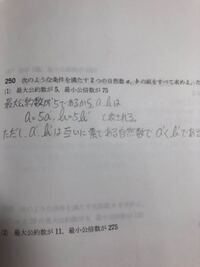 250 次のような条件を満たす2つの自然数 a, bの組をすべて求めよ。
(1) 最大公約数が 5, 最小公倍数が 75
最大公約数が5であるから、a, bは
a=5a', b=5b' と表される。
ただし a', b'は互いに素である自然数で a'<b'である
(2) 最大公約数が 11, 最小公倍数が 275